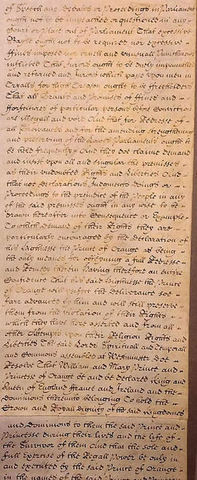 of Speech and Debates or Proceedings in Parliament
ought not to be impeached or questioned in any
Court or Place out of Parliament That excessive
Baile ought not to be required nor excessive
Fines imposed nor cruell and unusuall Punishments
inflicted That Jurors ought to be duely impannelled
and returned and Jurors which passe upon men in
Trialls for high Treason ought to be freeholders
That all Grants and Promises of Fines and
forfeitures of particular persons before Conviction
are illegall and void And that for Redresse of
all Grievances and for the amending strengthening
and preserving of the Lawes Parliaments ought to
be held frequently And they doe claime demand
and insist upon all and singular the premisses
as their undoubted Rights and Liberties And
that noe declarations Judgments doeings or
Proceedings to the prejudice of the People in any
of the said premisses ought in any wise to be
drawne hereafter into Consequence or Example
To which demand of their Rights they are
particularly encouraged by the declaration of
his Highnesse the Prince of Orange as being
the only meanes for obteyning a full Redresse
and Remedy therein Having therefore an intire
Confidence That his said Highnesse the Prince
of Orange will perfect the deliverance soe
farr advanced by him and will still preserve
them from the violation of their Rights
which they have here asserted and from all
other attempts upon their Religion Rights and
Liberties The said Lords Spirituall and Temporall
and Commons assembled at Westminster doe
Resolve That William and Mary Prince and
Princesse of Orange be and be declared King and
Queen of England France and Ireland and the
dominions thereunto belonging To hold the
Crown and Royall Dignity of the said Kingdomes
and dominions to them the said Prince and
Princesse during their lives and the life of
the Survivor of them And that the sole and
full exercise of the Regall Power be only in
and executed by the said Prince of Orange
in the names of the said Prince